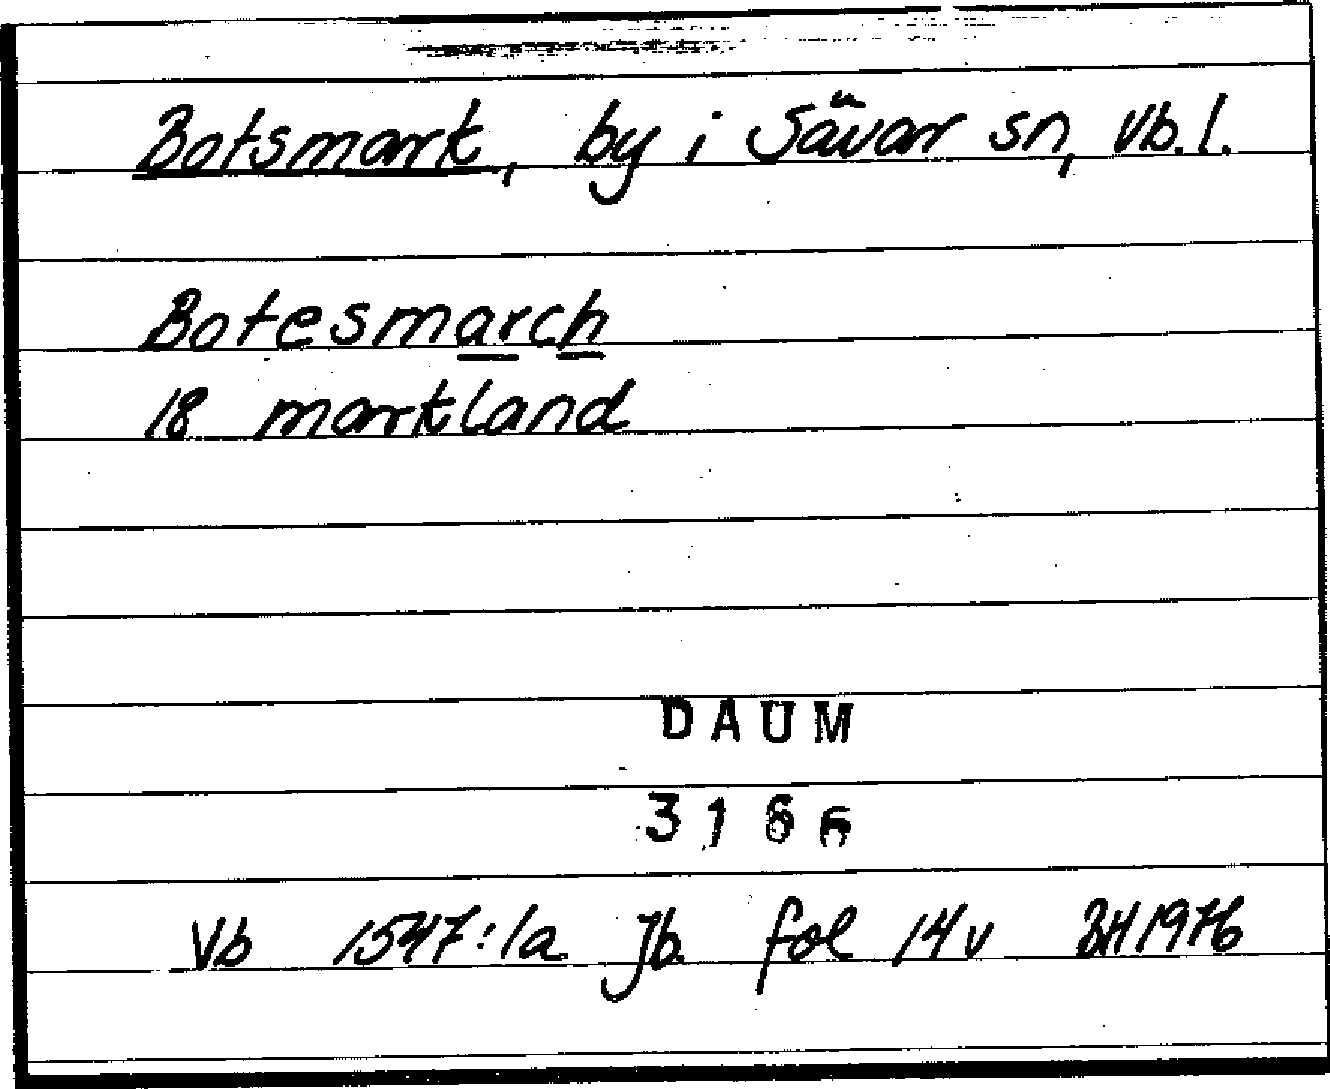 Botsmark, by i Sävar sn, Vb. l.
Botesmarch
18 markland
DAUM
3166
Vb 1547:1a Jb. fol 14v BH 1976